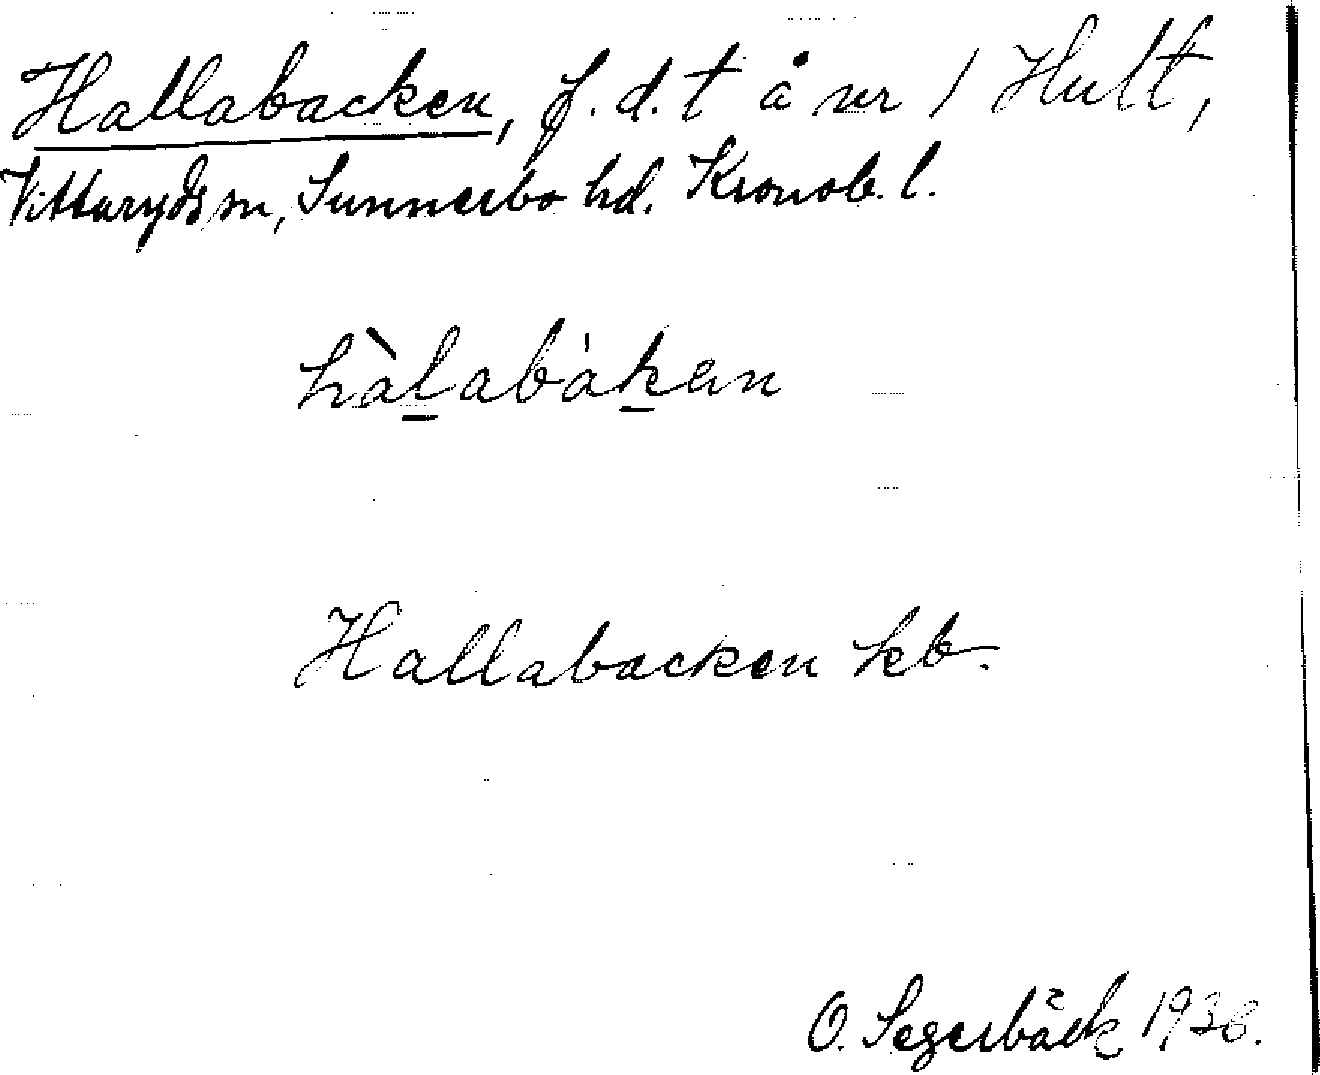 Hallabacken, f.d. t å nr 1 Hult,
Vittaryds sn, Sunnerbo hd. Kronob. l.
hàl̲abák̲en
Hallabacken kb.
O. Segerbäck 1938.